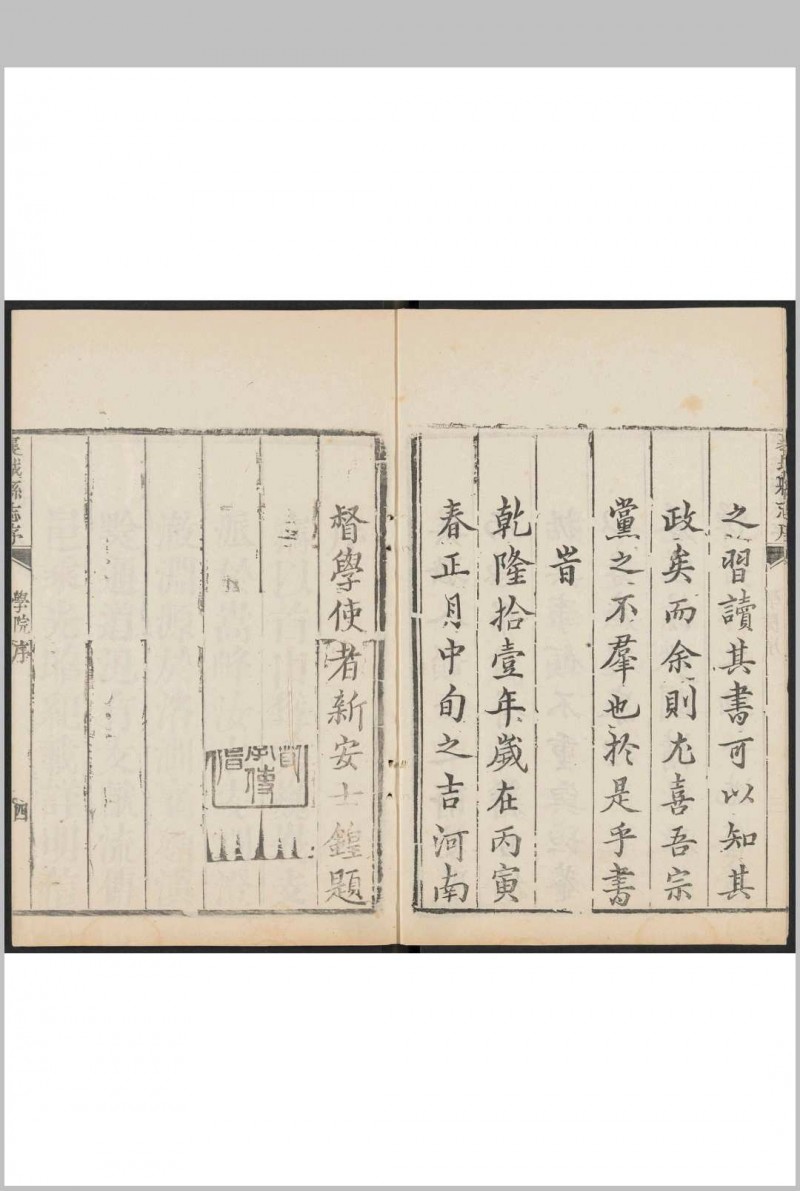 之習讀其書可以知其
政矣而余則尤喜吾宗
黨之不羣也於是乎書
旹
乾隆拾壹年歲在丙寅
春正月中旬之吉河南
督學使者新安士鍠題
縣志序
學院
序
四